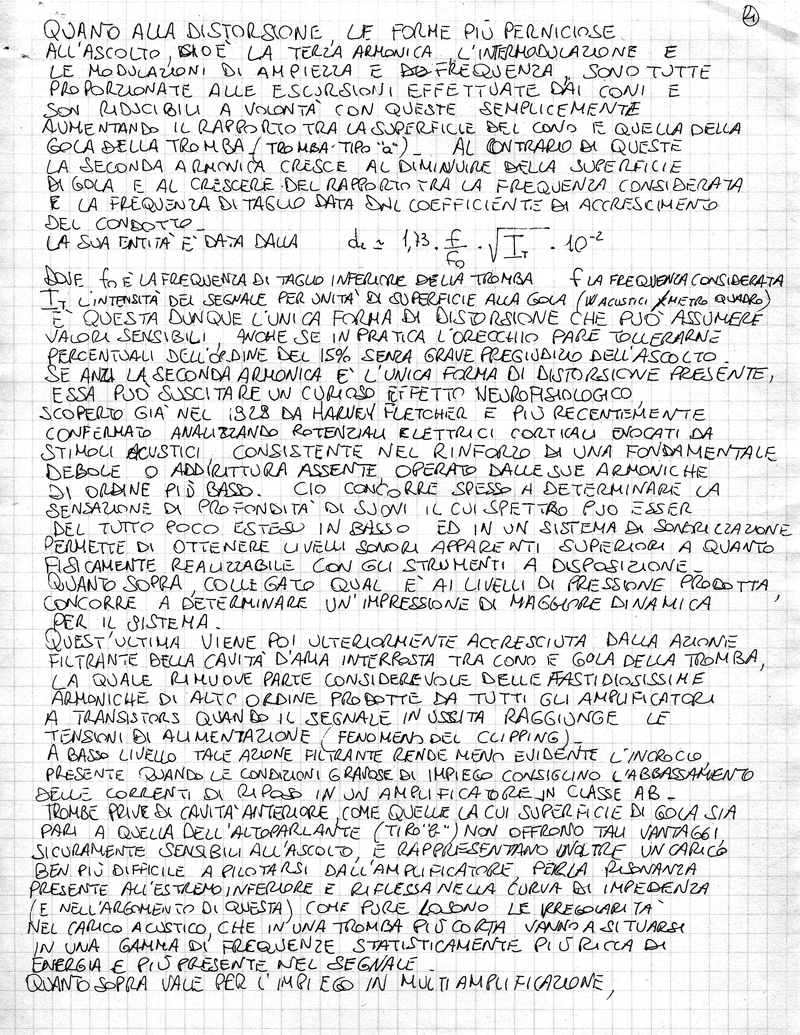 4
QUANTO ALLA DISTORSIONE, LE FORME PIÙ PERNICIOSE
ALL'ASCOLTO, CIOÈ LA TERZA ARMONICA L'INTERMODULAZIONE E
LE MODULAZIONI DI AMPIEZZA E DI FREQUENZA, SONO TUTTE
PROPORZIONATE ALLE ESCURSIONI EFFETTUATE DAI CONI E
SON RIDUCIBILI A VOLONTÀ CON QUESTE SEMPLICEMENTE
AUMENTANDO IL RAPPORTO TRA LA SUPERFICIE DEL CONO E QUELLA DELLA
GOLA DELLA TROMBA (TROMBA TIPO "a"). AL CONTRARIO DI QUESTE
LA SECONDA ARMONICA CRESCE AL DIMINUIRE DELLA SUPERFICIE
DI GOLA E AL CRESCERE DEL RAPPORTO TRA LA FREQUENZA CONSIDERATA
E LA FREQUENZA DI TAGLIO DATA DAL COEFFICIENTE DI ACCRESCIMENTO
DEL CONDOTTO.
LA SUA ENTITÀ È DATA DALLA d₂ ≃ 1,73 · f/f₀ · √I_T · 10⁻²
DOVE f₀ È LA FREQUENZA DI TAGLIO INFERIORE DELLA TROMBA f LA FREQUENZA CONSIDERATA
I_T L'INTENSITÀ DEL SEGNALE PER UNITÀ DI SUPERFICIE ALLA GOLA (W ACUSTICI / METRO QUADRO)
È QUESTA DUNQUE L'UNICA FORMA DI DISTORSIONE CHE PUÒ ASSUMERE
VALORI SENSIBILI, ANCHE SE IN PRATICA L'ORECCHIO PARE TOLLERARNE
PERCENTUALI DELL'ORDINE DEL 15% SENZA GRAVE PREGIUDIZIO DELL'ASCOLTO.
SE ANZI LA SECONDA ARMONICA È L'UNICA FORMA DI DISTORSIONE PRESENTE,
ESSA PUÒ SUSCITARE UN CURIOSO EFFETTO NEUROFISIOLOGICO,
SCOPERTO GIÀ NEL 1928 DA HARVEY FLETCHER E PIÙ RECENTEMENTE
CONFERMATO ANALIZZANDO POTENZIALI ELETTRICI CORTICALI EVOCATI DA
STIMOLI ACUSTICI, CONSISTENTE NEL RINFORZO DI UNA FONDAMENTALE
DEBOLE O ADDIRITTURA ASSENTE OPERATO DALLE SUE ARMONICHE
DI ORDINE PIÙ BASSO. CIÒ CONCORRE SPESSO A DETERMINARE LA
SENSAZIONE DI PROFONDITÀ DI SUONI IL CUI SPETTRO PUÒ ESSER
DEL TUTTO POCO ESTESO IN BASSO ED IN UN SISTEMA DI SONORIZZAZIONE
PERMETTE DI OTTENERE LIVELLI SONORI APPARENTI SUPERIORI A QUANTO
FISICAMENTE REALIZZABILE CON GLI STRUMENTI A DISPOSIZIONE.
QUANTO SOPRA, COLLEGATO QUAL È AI LIVELLI DI PRESSIONE PRODOTTA,
CONCORRE A DETERMINARE UN'IMPRESSIONE DI MAGGIORE DINAMICA
PER IL SISTEMA.
QUEST'ULTIMA VIENE POI ULTERIORMENTE ACCRESCIUTA DALLA AZIONE
FILTRANTE DELLA CAVITÀ D'ARIA INTERPOSTA TRA CONO E GOLA DELLA TROMBA,
LA QUALE RIMUOVE PARTE CONSIDEREVOLE DELLE FASTIDIOSISSIME
ARMONICHE DI ALTO ORDINE PRODOTTE DA TUTTI GLI AMPLIFICATORI
A TRANSISTORS QUANDO IL SEGNALE IN USCITA RAGGIUNGE LE
TENSIONI DI ALIMENTAZIONE (FENOMENO DEL CLIPPING).
A BASSO LIVELLO TALE AZIONE FILTRANTE RENDE MENO EVIDENTE L'INCROCIO,
PRESENTE QUANDO LE CONDIZIONI GRAVOSE DI IMPIEGO CONSIGLINO L'ABBASSAMENTO
DELLE CORRENTI DI RIPOSO IN UN AMPLIFICATORE IN CLASSE AB.
TROMBE PRIVE DI CAVITÀ ANTERIORE, COME QUELLE LA CUI SUPERFICIE DI GOLA SIA
PARI A QUELLA DELL'ALTOPARLANTE (TIPO "B") NON OFFRONO TALI VANTAGGI
SICURAMENTE SENSIBILI ALL'ASCOLTO, E RAPPRESENTANO INOLTRE UN CARICO
BEN PIÙ DIFFICILE A PILOTARSI DALL'AMPLIFICATORE, PER LA RISONANZA
PRESENTE ALL'ESTREMO INFERIORE E RIFLESSA NELLA CURVA DI IMPEDENZA
(E NELL'ARGOMENTO DI QUESTA) COME PURE LO SONO LE IRREGOLARITÀ
NEL CARICO ACUSTICO, CHE IN UNA TROMBA PIÙ CORTA VANNO A SITUARSI
IN UNA GAMMA DI FREQUENZE STATISTICAMENTE PIÙ RICCA DI
ENERGIA E PIÙ PRESENTE NEL SEGNALE.
QUANTO SOPRA VALE PER L'IMPIEGO IN MULTIAMPLIFICAZIONE,